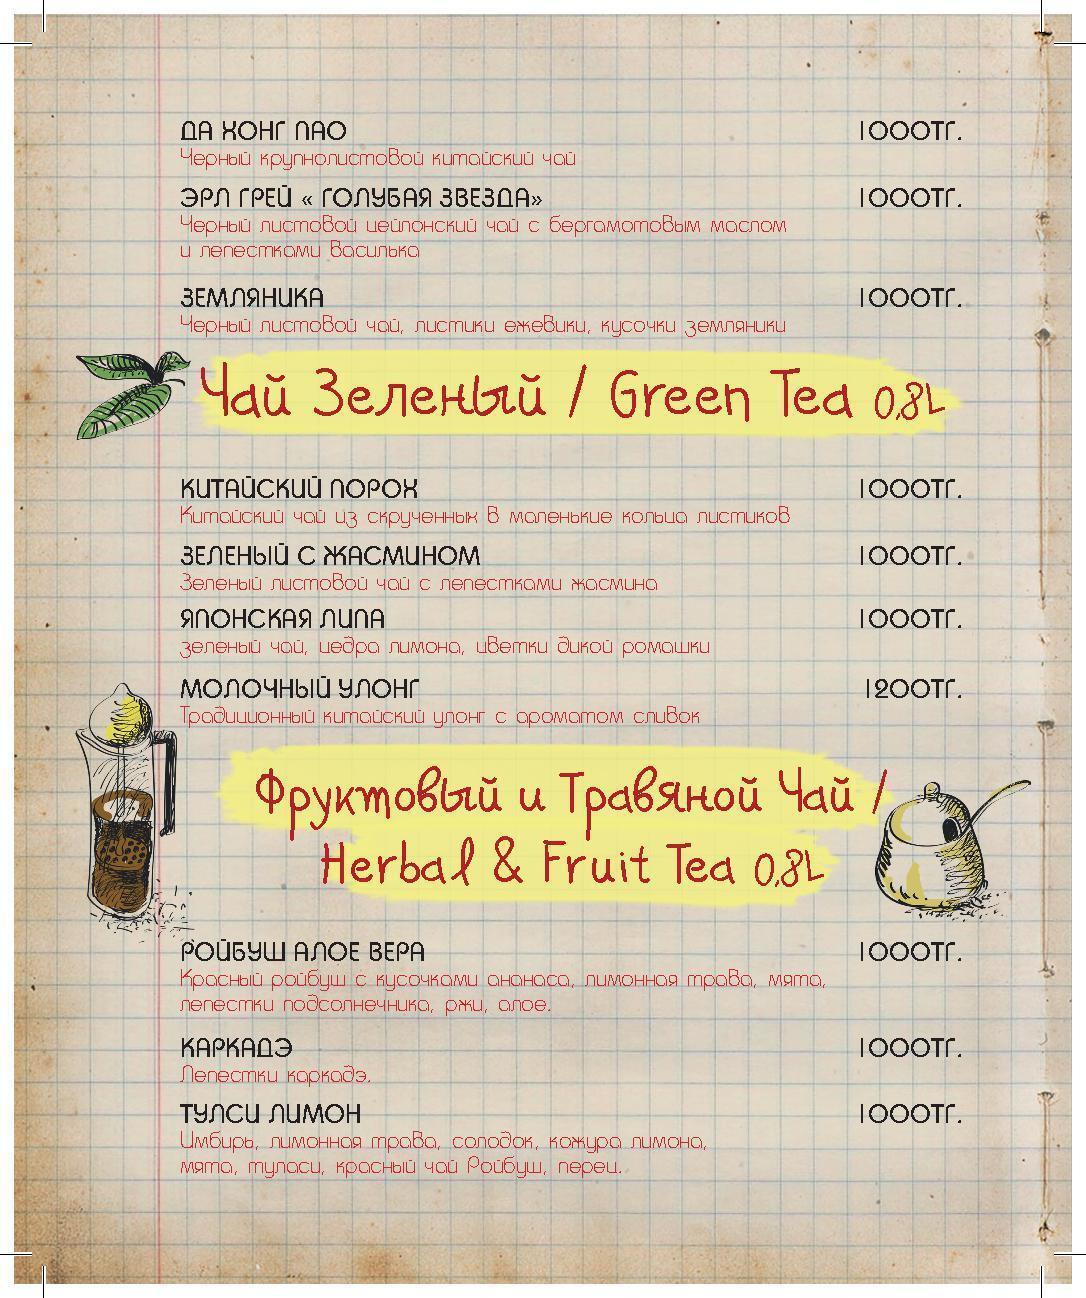 ДА ХОНГ ПАО 1000ТГ.
Черный крупнолистовой китайский чай
ЭРЛ ГРЕЙ « ГОЛУБАЯ ЗВЕЗДА» 1000ТГ.
Черный листовой цейлонский чай с бергамотовым маслом
и лепестками василька
ЗЕМЛЯНИКА 1000ТГ.
Черный листовой чай, листики ежевики, кусочки земляники
Чай Зеленый / Green Tea 0,8L
КИТАЙСКИЙ ПОРОХ 1000ТГ.
Китайский чай из скрученных в маленькие кольца листиков
ЗЕЛЕНЫЙ С ЖАСМИНОМ 1000ТГ.
Зеленый листовой чай с лепестками жасмина
ЯПОНСКАЯ ЛИПА 1000ТГ.
зеленый чай, цедра лимона, цветки дикой ромашки
МОЛОЧНЫЙ УЛОНГ 1200ТГ.
Традиционный китайский улонг с ароматом сливок
Фруктовый и Травяной Чай /
Herbal & Fruit Tea 0,8L
РОЙБУШ АЛОЕ ВЕРА 1000ТГ.
Красный ройбуш с кусочками ананаса, лимонная трава, мята,
лепестки подсолнечника, ржи, алое.
КАРКАДЭ 1000ТГ.
Лепестки каркадэ.
ТУЛСИ ЛИМОН 1000ТГ.
Имбирь, лимонная трава, солодок, кожура лимона,
мята, туласи, красный чай Ройбуш, перец.